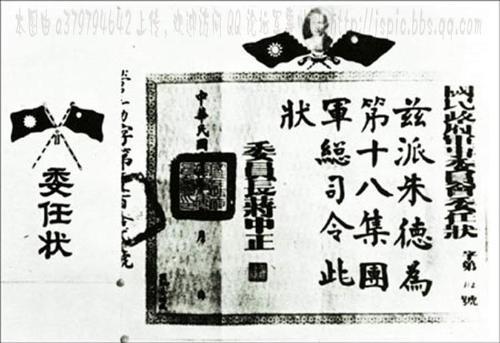 本图由 a379794642 上传,欢迎访问 QQ 论坛军事 http://ispic.bbs.qq.com
國民政府軍事委員會委任狀
字第 號
茲派朱德為
第十八集團
軍總司令此
狀
委員長蔣中正
中華民國 年 月
委任状